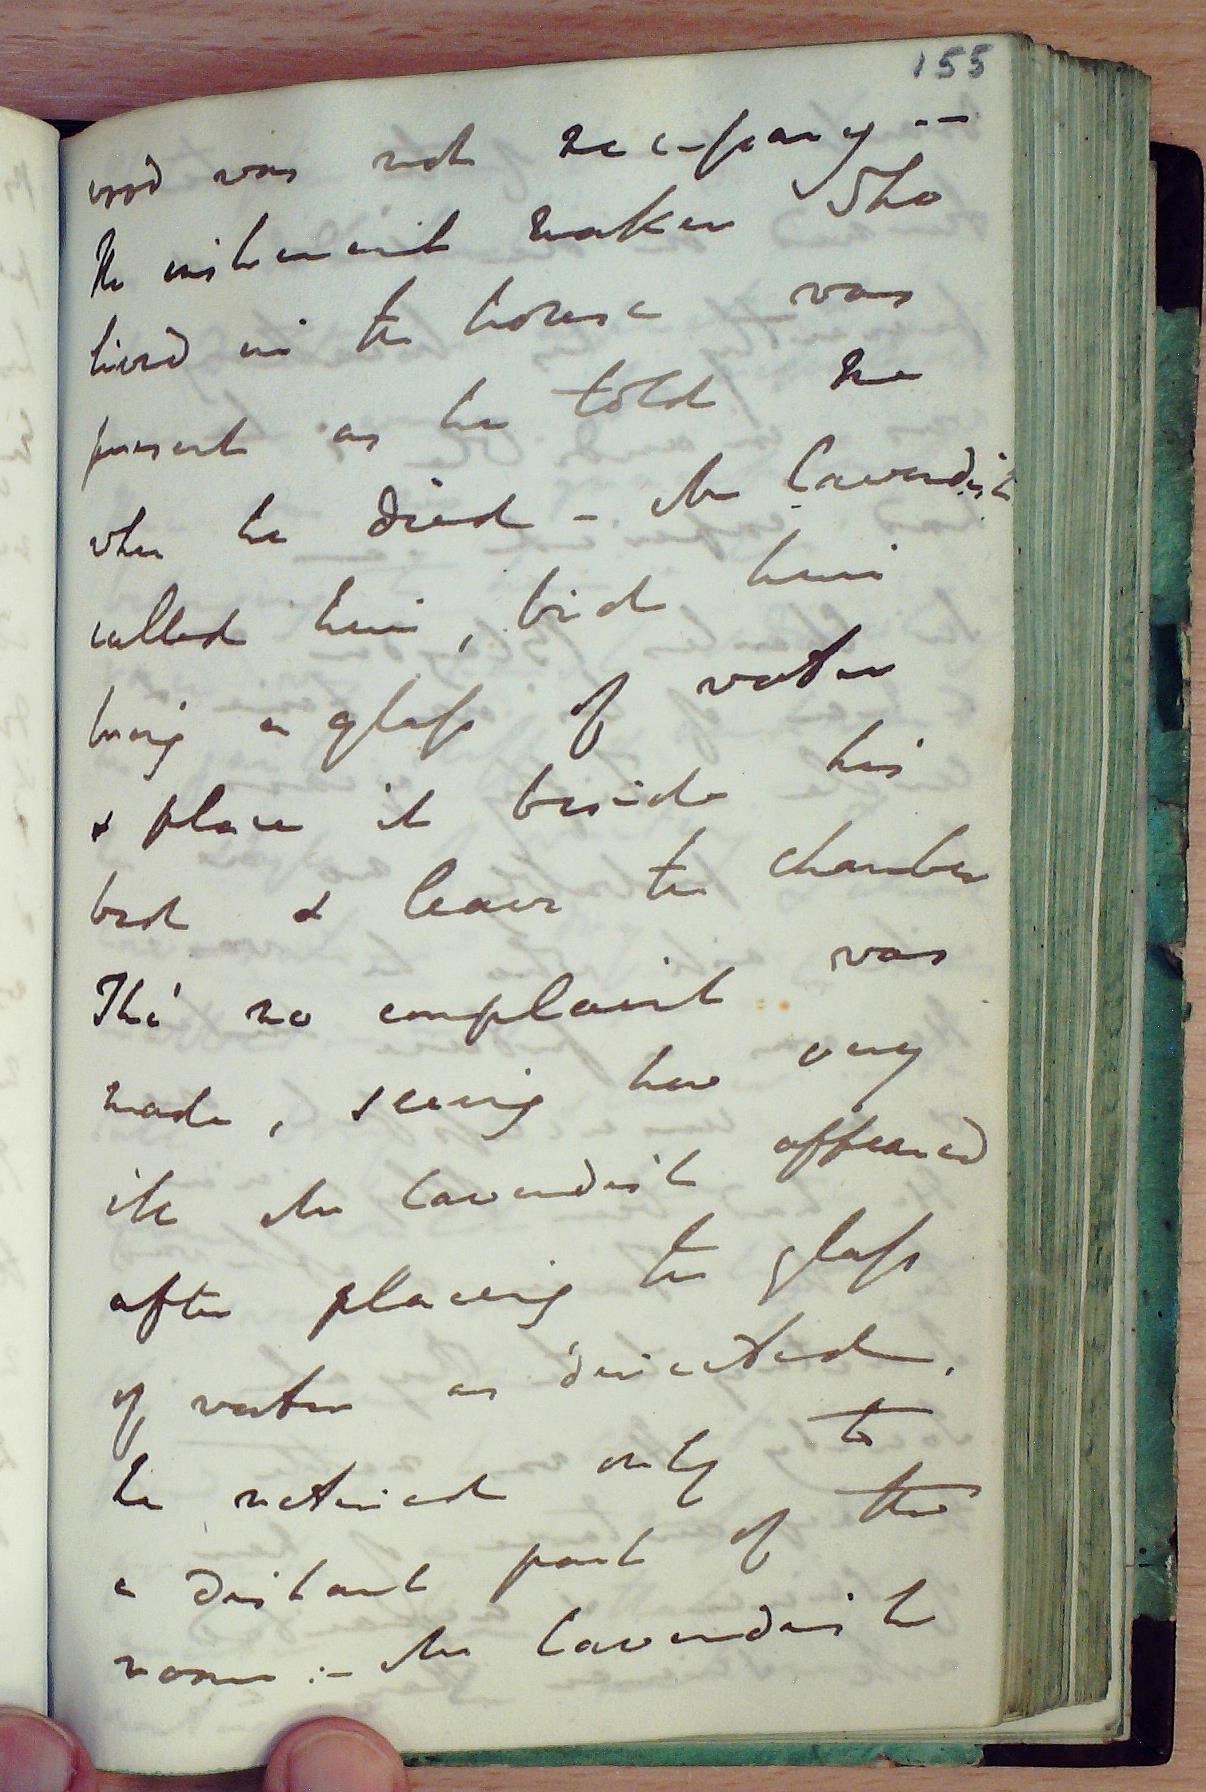 155
word was not necessary --
The instrument maker who
lived in the house was
present as he told me
when he died - Mr Cavendish
called him, bid him
bring a glass of water
& place it beside his
bed & leave the chamber
Tho' no complaint was
made, seeing how very
ill Mr Cavendish appeared
after placing the glass
of water as directed,
he retired only to
a distant part of the
room :- Mr Cavendish